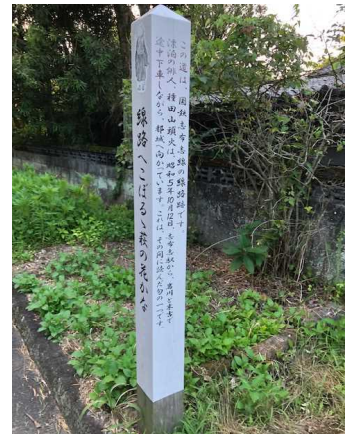 この道は、国鉄志布志線の線路跡です。
漂泊の俳人 種田山頭火は、昭和5年10月12日、志布志駅から、岩川と末吉で
途中下車しながら、都城へ向かっています。これは、その間に読んだ句の一つです。
線路へこぼるゝ萩の花かな